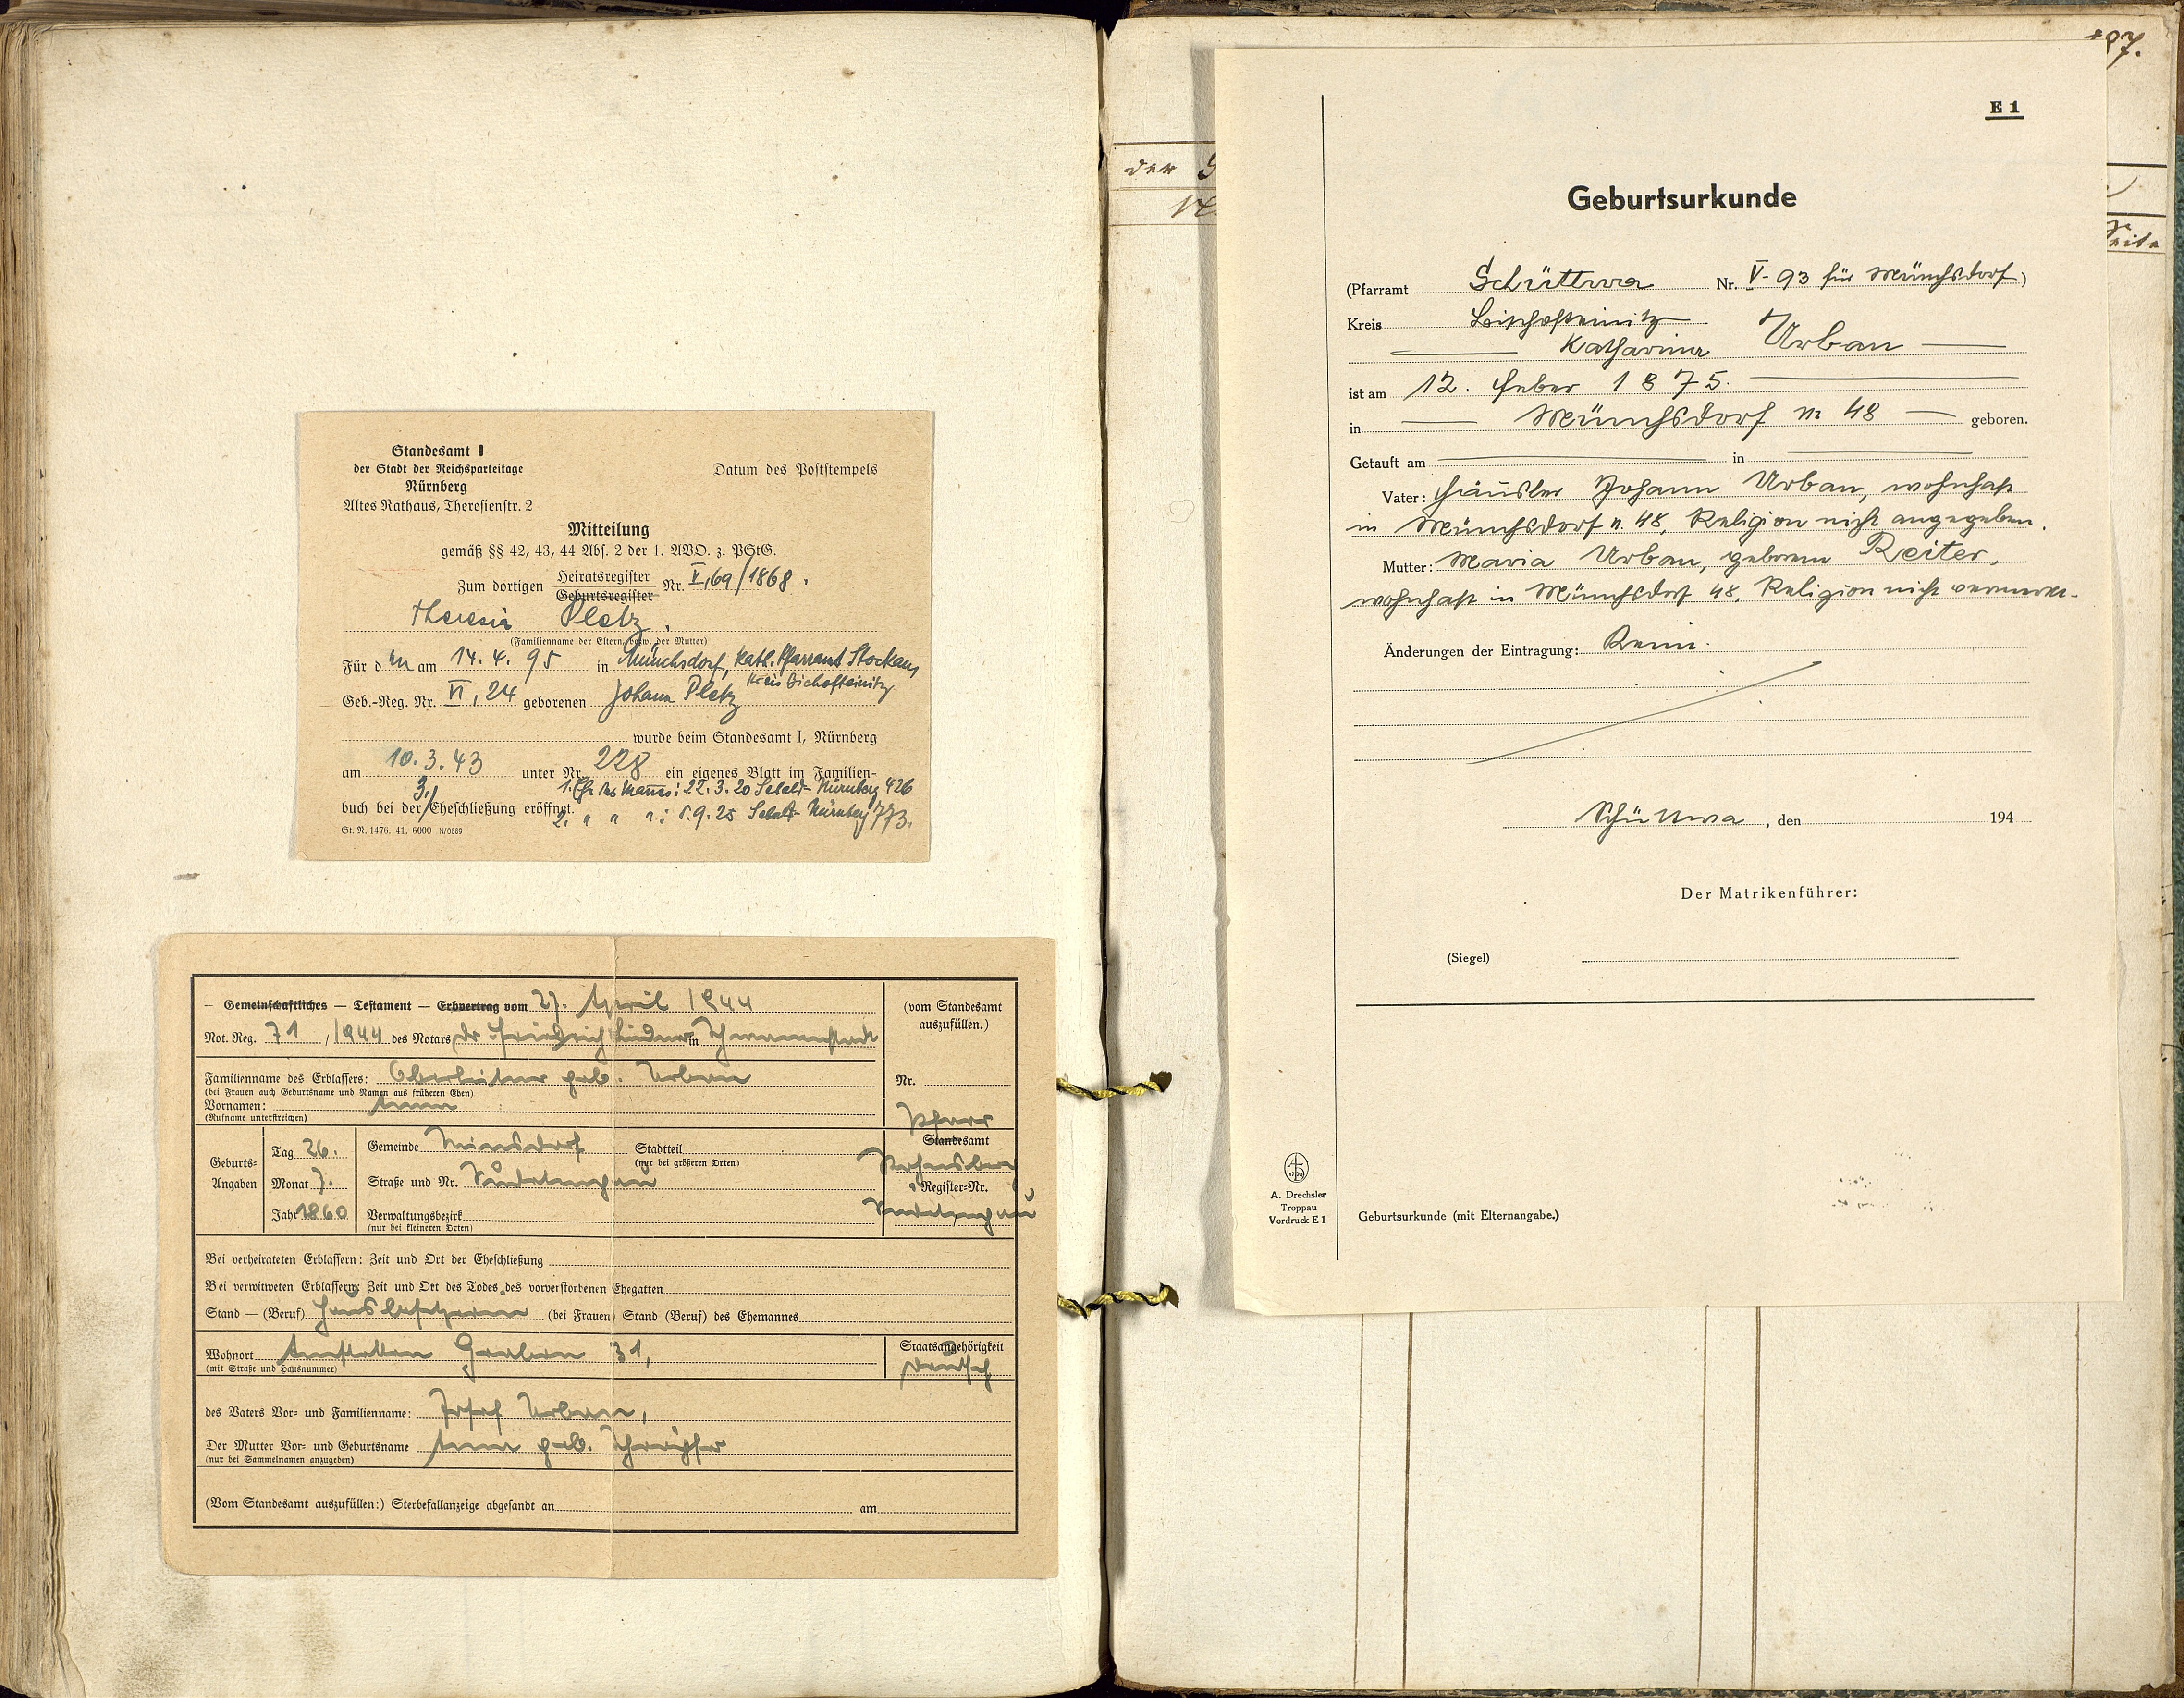 Standesamt I
der Stadt der Reichsparteitage
Nürnberg
Altes Rathaus, Theresienstr. 2
Datum des Poststempels
Mitteilung
gemäß §§ 42, 43, 44 Abs. 2 der 1. AVO. z. PStG.
Zum dortigen Heiratsregister Geburtsregister Nr. V, 69/1868.
Theresia Pletz.
(Familienname der Eltern, bezw. der Mutter)
Für den am 14. 4. 95 in Münchsdorf, kath. Pfarramt Stockau,
Kreis Bischofteinitz
Geb.-Reg. Nr. VI, 24 geborenen Johann Pletz
wurde beim Standesamt I, Nürnberg
am 10. 3. 43 unter Nr. 228 ein eigenes Blatt im Familien-
1. Ehe des Mannes: 22. 3. 20 Sebald-Nürnberg 426
buch bei der 3./ Eheschließung eröffnet.
2. " " ": 5. 9. 25 Nürnberg 773.
St. N. 1476. 41. 6000 N/0889
– Gemeinschaftliches – Testament – Erbvertrag vom 27. April 1944
Not. Reg. 71, /1944 des Notars Dr. Friedrich Lindner in Schwanenstadt
(vom Standesamt
auszufüllen.)
Familienname des Erblassers: Oberleitner geb. Urban
(bei Frauen auch Geburtsname und Namen aus früheren Ehen)
Nr.
Vornamen: Anna
(Rufname unterstreichen)
Pfarr
Standesamt
Geburts-
Angaben
Tag 26.
Monat 7.
Jahr 1860
Gemeinde Stadtteil
(nur bei größeren Orten)
Straße und Nr. Sudetengau
Register-Nr.
Sudetengau
Verwaltungsbezirk
(nur bei kleineren Orten)
Bei verheirateten Erblassern: Zeit und Ort der Eheschließung
Bei verwitweten Erblassern: Zeit und Ort des Todes des vorverstorbenen Ehegatten
Stand — (Beruf) Hausbesitzerin (bei Frauen) Stand (Beruf) des Ehemannes
Wohnort Amstetten Graben 31,
(mit Straße und Hausnummer)
Staatsangehörigkeit
deutsch
des Vaters Vor- und Familienname: Josef Urban,
Der Mutter Vor- und Geburtsname Anna geb.
(nur bei Sammelnamen anzugeben)
(Vom Standesamt auszufüllen:) Sterbefallanzeige abgesandt an am
der
87.
Seite
E 1
Geburtsurkunde
(Pfarramt Schüttwa Nr. V - 93 für Münchsdorf)
Kreis Bischofteinitz
Katharina Urban
ist am 12. Feber 1875.
in Münchsdorf n 48 geboren.
Getauft am in
Vater: Häusler Johann Urban, wohnhaft
in Münchsdorf n. 48, Religion nicht angegeben.
Mutter: Maria Urban, geborene Reiter,
wohnhaft in Münchsdorf 48, Religion nicht
Änderungen der Eintragung: Keine.
Schüttwa, den 194
Der Matrikenführer:
(Siegel)
A. Drechsler
Troppau
Vordruck E 1
Geburtsurkunde (mit Elternangabe.)